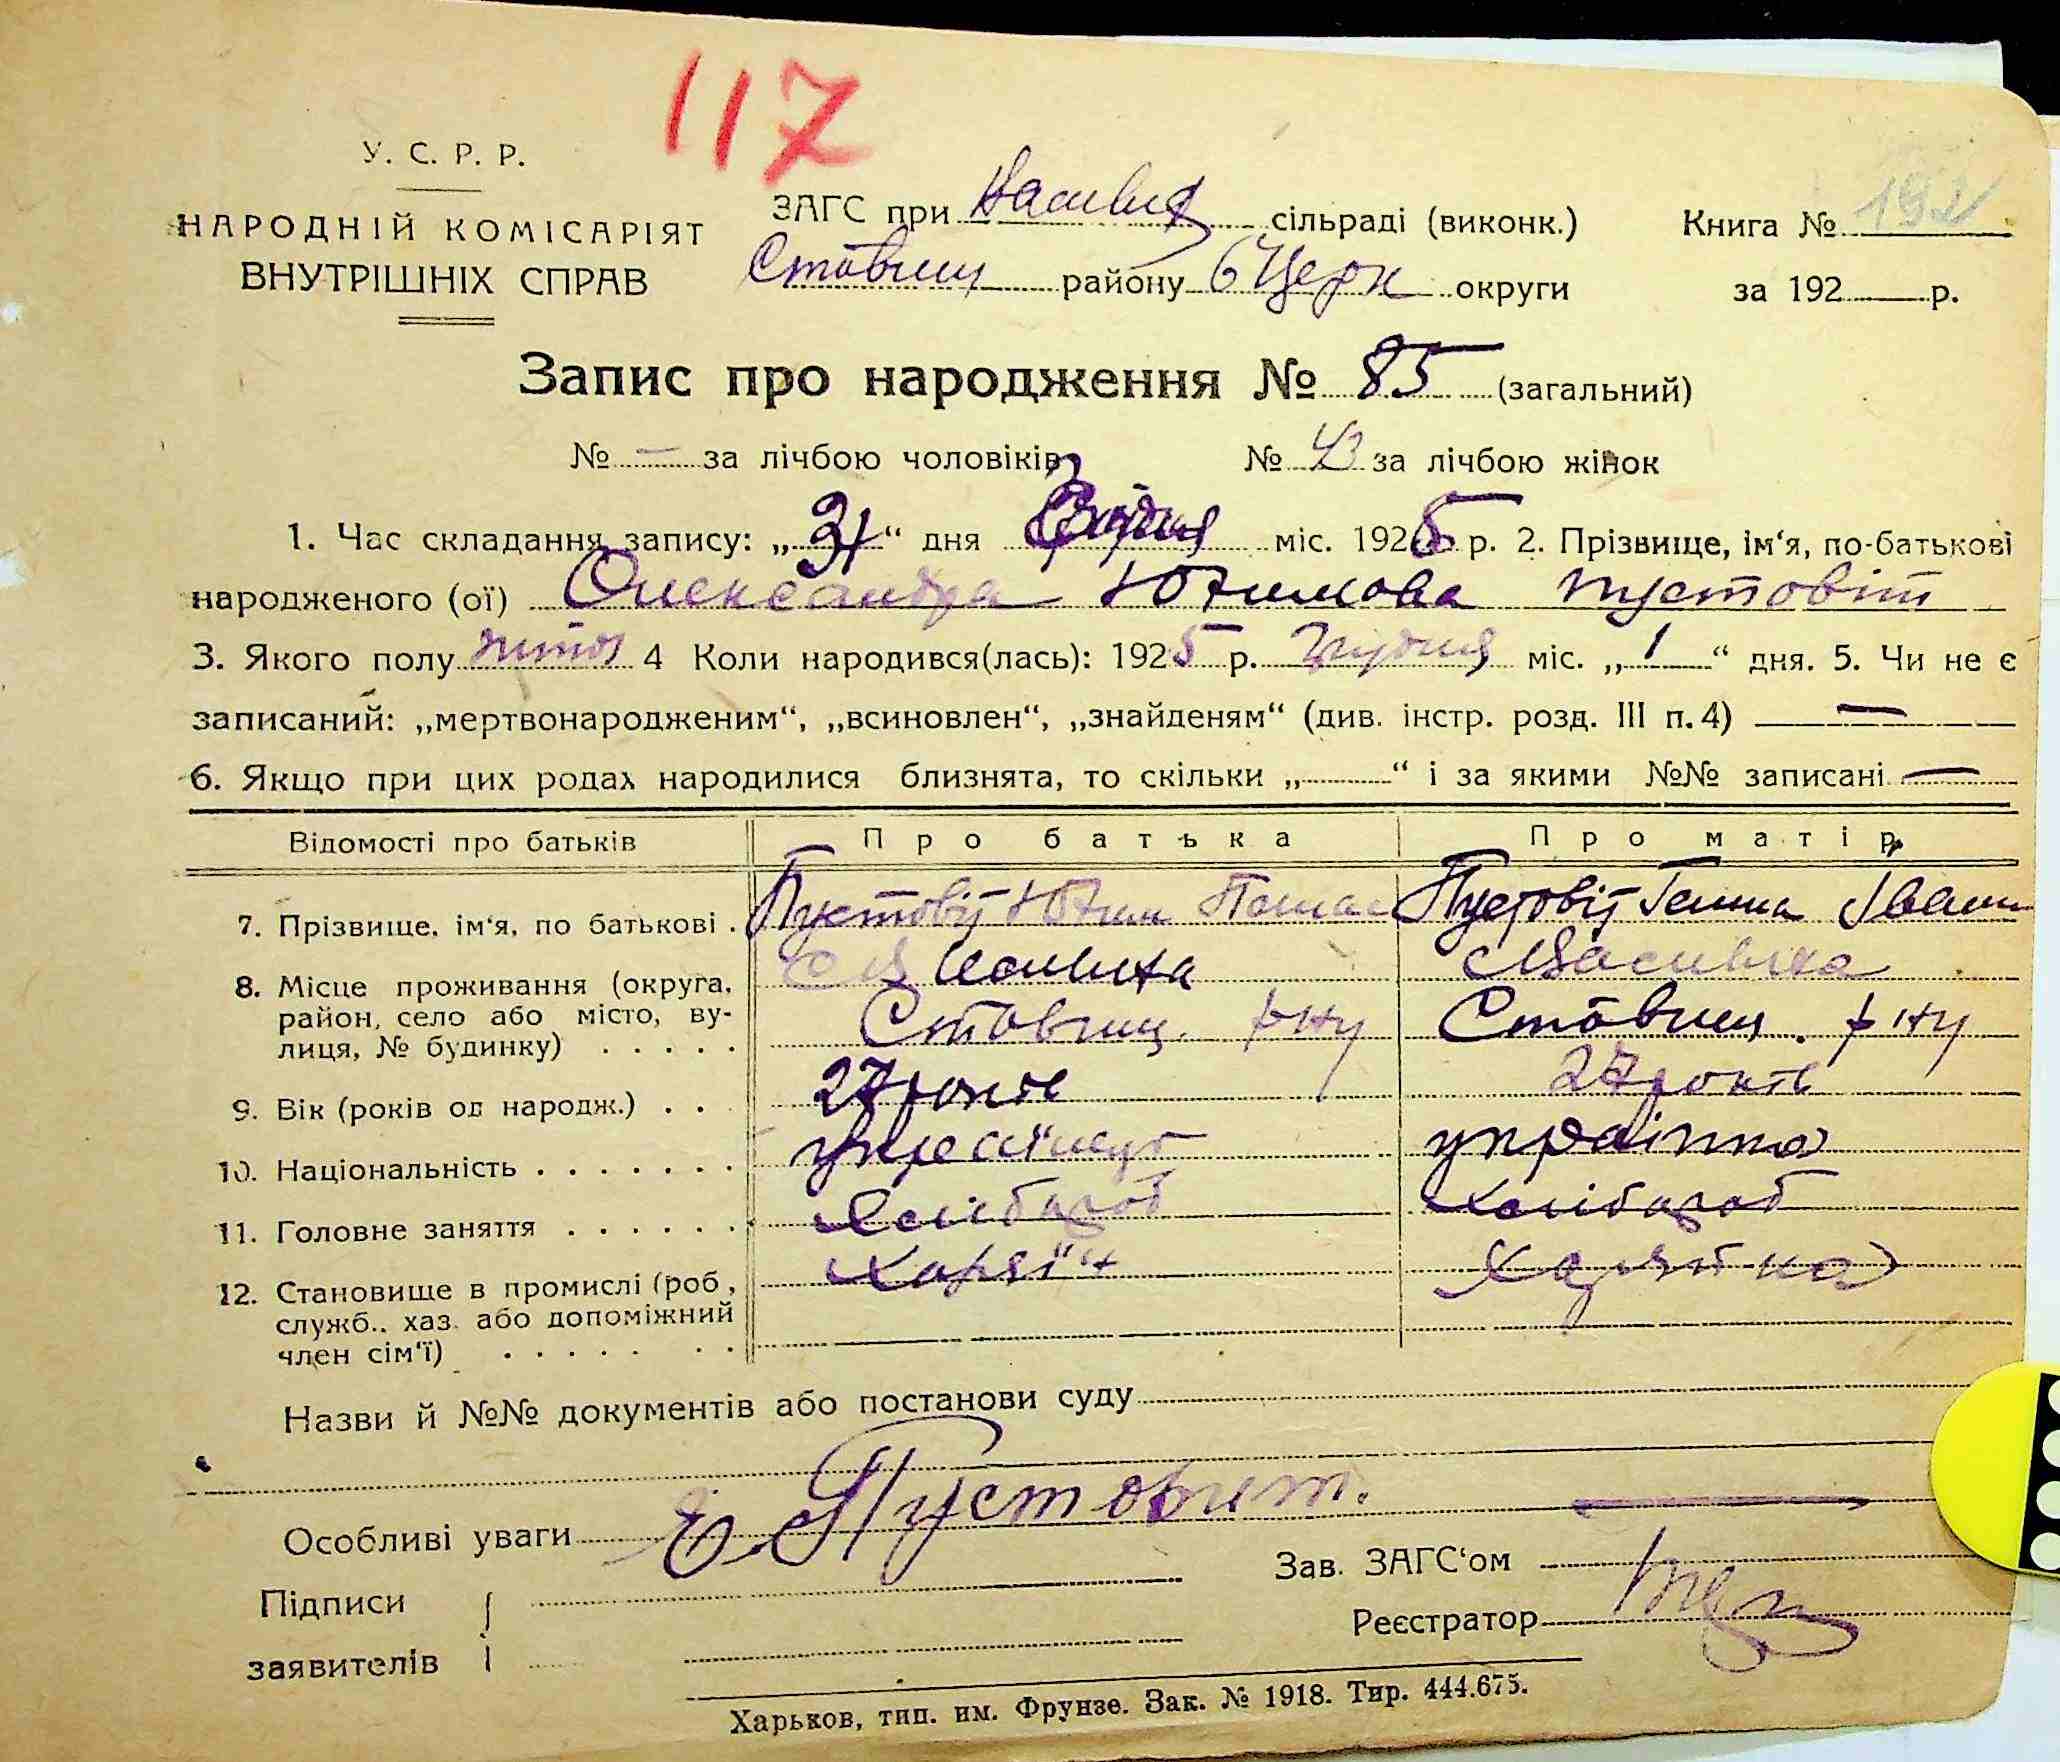 117
У. С. Р. Р.
НАРОДНІЙ КОМІСАРІЯТ
ВНУТРІШНІХ СПРАВ
ЗАГС при сільраді (виконк.)
Ставищ району б Церк округи
Книга № 192
за 192 р.
Запис про народження № 85 (загальний)
№ — за лічбою чоловіків № 43 за лічбою жінок
1. Час складання запису: „ “ дня міс. 1925 р. 2. Прізвище, ім‘я, по-батькові
народженого (ої) Олександра Юхимова Пустовіт
3. Якого полу 4 Коли народився(лась): 1925 р. Грудня міс. „1“ дня. 5. Чи не є
записаний: „мертвонародженим“, „всиновлен“, „знайденям“ (див. інстр. розд. III п. 4) —
6. Якщо при цих родах народилися близнята, то скільки „ “ і за якими №№ записані —
Відомості про батьків Про батька Про матір
7. Прізвище, ім‘я, по батькові . Пустовіт Юхим Пустовіт Ганна Іван
8. Місце проживання (округа, район, село або місто, вулиця, № будинку) . . . . .
Ставищ. р ну Ставищ. р ну
9. Вік (років од народж.) . . 27 років 27 років
10. Національність . . . . . . . українець українка
11. Головне заняття . . . . . . Хлібороб Хлібороб
12. Становище в промислі (роб, служб., хаз. або допоміжний член сім‘ї) . . . . . . . Хазяїн Хазяйка
Назви й №№ документів або постанови суду
Особливі уваги Е. Пустовит.
Підписи
заявителів
Зав. ЗАГС‘ом
Реєстратор
Харьков, тип. им. Фрунзе. Зак. № 1918. Тир. 444.675.